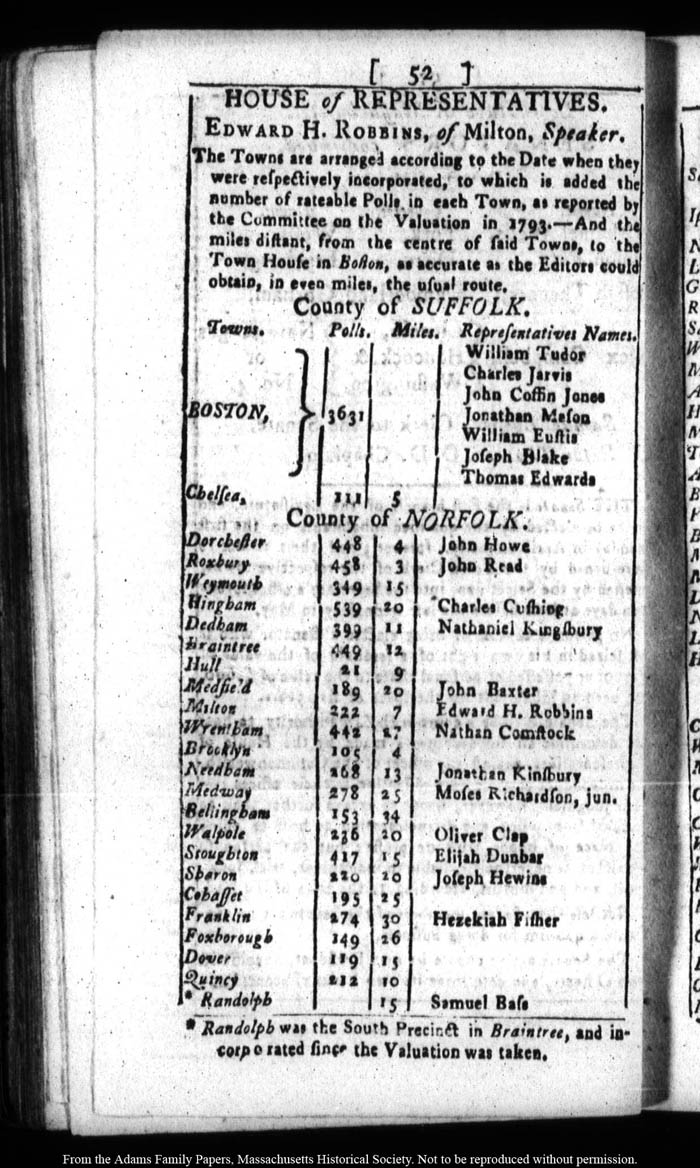 [ 52 ]
HOUSE of REPRESENTATIVES.
EDWARD H. ROBBINS, of Milton, Speaker.
The Towns are arranged according to the Date when they
were reſpectively incorporated, to which is added the
number of rateable Polls in each Town, as reported by
the Committee on the Valuation in 1793.—And the
miles diſtant, from the centre of ſaid Towns, to the
Town Houſe in Boſton, as accurate as the Editors could
obtain, in even miles, the uſual route.
County of SUFFOLK.
Towns. Polls. Miles. Repreſentatives Names.
William Tudor
Charles Jarvis
John Coffin Jones
BOSTON, 3631 Jonathan Maſon
William Euſtis
Joſeph Blake
Thomas Edwards
Chelſea, 111 5
County of NORFOLK.
Dorcheſter 448 4 John Howe
Roxbury 458 3 John Read
Weymouth 349 15
Hingham 539 20 Charles Cuſhing
Dedham 399 11 Nathaniel Kingſbury
Braintree 449 12
Hull 21 9
Medfield 189 20 John Baxter
Milton 222 7 Edward H. Robbins
Wrentham 442 27 Nathan Comſtock
Brooklyn 105 4
Needham 268 13 Jonathan Kinſbury
Medway 278 25 Moſes Richardſon, jun.
Bellingham 153 34
Walpole 236 20 Oliver Clap
Stoughton 417 15 Elijah Dunbar
Sharon 220 20 Joſeph Hewins
Cohaſſet 195 25
Franklin 274 30 Hezekiah Fiſher
Foxborough 149 26
Dover 119 15
Quincy 212 10
* Randolph 15 Samuel Baſs
* Randolph was the South Precinct in Braintree, and in-
corporated ſince the Valuation was taken.
From the Adams Family Papers, Massachusetts Historical Society. Not to be reproduced without permission.